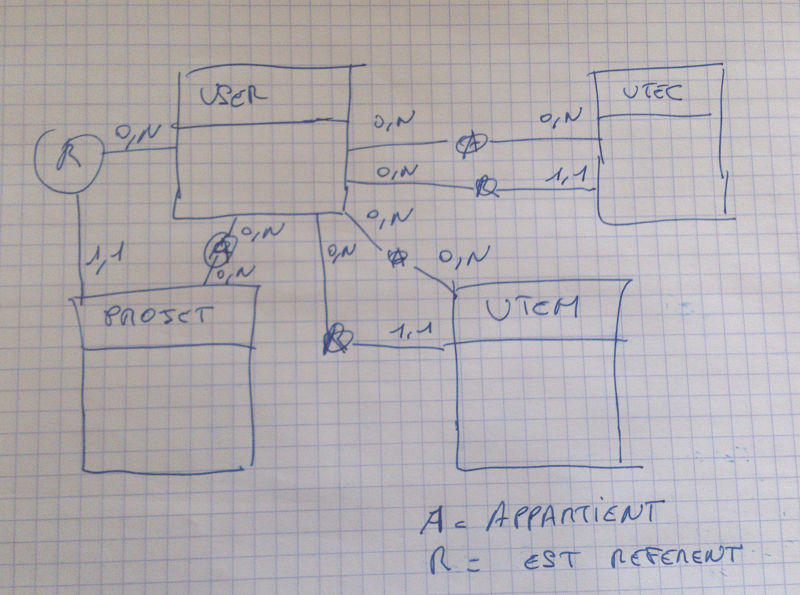 USER
UTEC
0,N
R
0,N
A
0,N
0,N
R
1,1
0,N
A
0,N
0,N
0,N
A
0,N
1,1
PROJET
UTEM
R
1,1
A = APPARTIENT
R = EST REFERENT